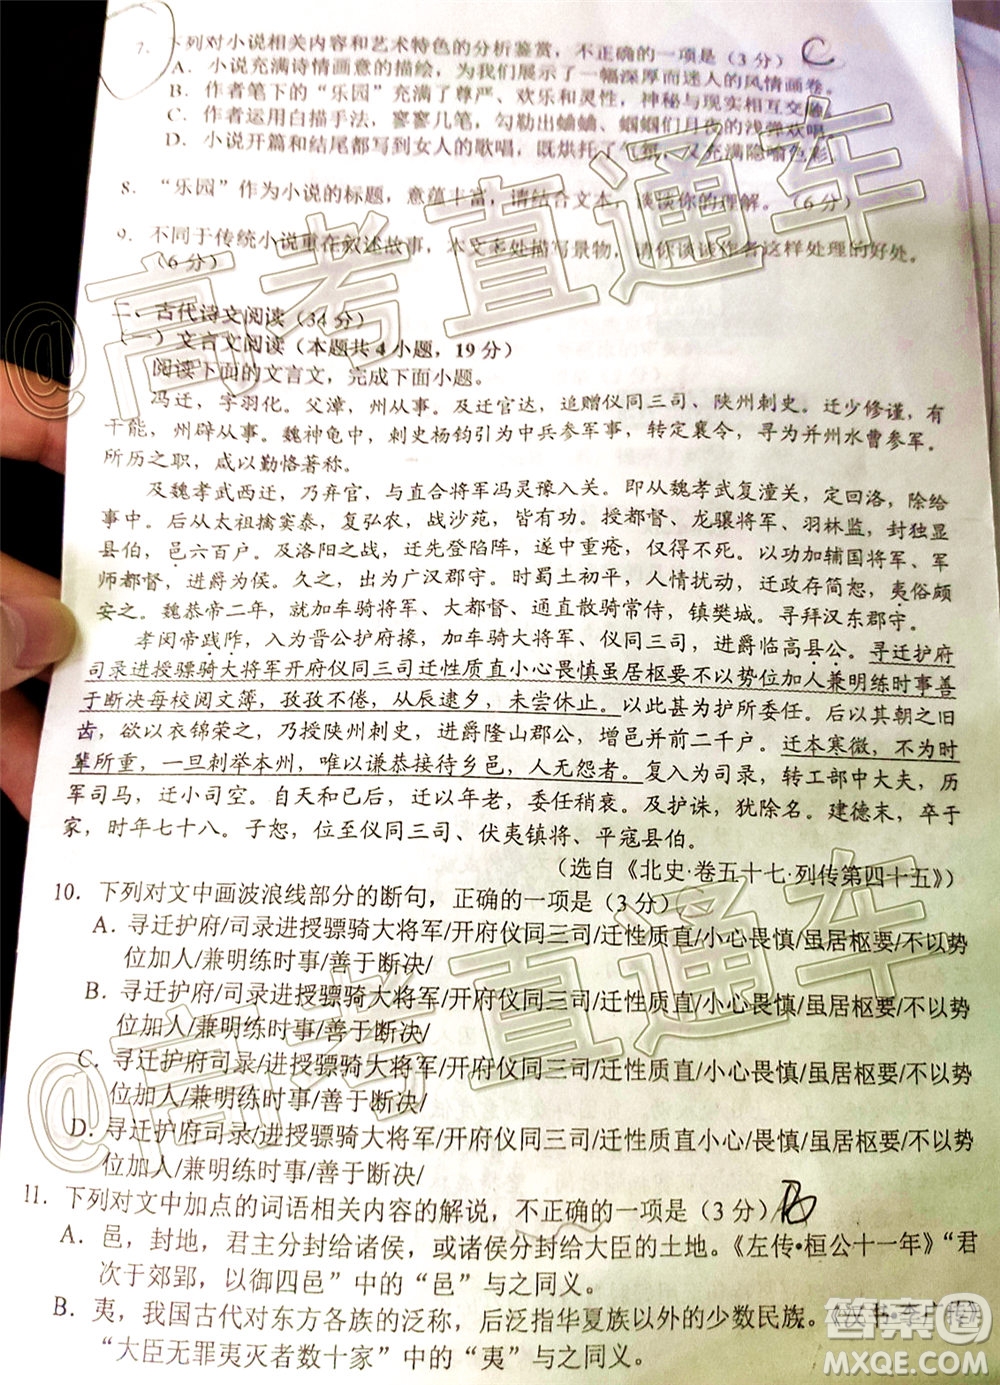 7．下列对小说相关内容和艺术特色的分析鉴赏，不正确的一项是（3分） C
A．小说充满诗情画意的描绘，为我们展示了一幅深厚而迷人的风情画卷。
B．作者笔下的“乐园”充满了尊严、欢乐和灵性，神秘与现实相互交融。
C．作者运用白描手法，寥寥几笔，勾勒出蛐蛐、蝈蝈们月夜的浅弹欢唱。
D．小说开篇和结尾都写到女人的歌唱，既烘托了气氛，又充满隐喻色彩。
8．“乐园”作为小说的标题，意蕴丰富，请结合文本，谈谈你的理解。（6分）
9．不同于传统小说重在叙述故事，本文多处描写景物，请你谈谈作者这样处理的好处。
（6分）
二、古代诗文阅读（34分）
（一）文言文阅读（本题共4小题，19分）
阅读下面的文言文，完成下面小题。
冯迁，字羽化。父漳，州从事。及迁官达，追赠仪同三司、陕州刺史。迁少修谨，有
干能，州辟从事。魏神龟中，刺史杨钧引为中兵参军事，转定襄令，寻为并州水曹参军。
所历之职，咸以勤恪著称。
及魏孝武西迁，乃弃官，与直合将军冯灵豫入关。即从魏孝武复潼关，定回洛，除给
事中。后从太祖擒窦泰，复弘农，战沙苑，皆有功。授都督、龙骧将军、羽林监，封独显
县伯，邑六百户。及洛阳之战，迁先登陷阵，遂中重疮，仅得不死。以功加辅国将军、军
师都督，进爵为侯。久之，出为广汉郡守。时蜀土初平，人情扰动，迁政存简恕，夷俗颇
安之。魏恭帝二年，就加车骑将军、大都督、通直散骑常侍，镇樊城。寻拜汉东郡守。
孝闵帝践阼，入为晋公护府掾，加车骑大将军、仪同三司，进爵临高县公。寻迁护府
司录进授骠骑大将军开府仪同三司迁性质直小心畏慎虽居枢要不以势位加人兼明练时事善
于断决每校阅文簿，孜孜不倦，从辰逮夕，未尝休止。以此甚为护所委任。后以其朝之旧
齿，欲以衣锦荣之，乃授陕州刺史，进爵隆山郡公，增邑并前二千户。迁本寒微，不为时
辈所重，一旦刺举本州，唯以谦恭接待乡邑，人无怨者。复入为司录，转工部中大夫，历
军司马，迁小司空。自天和已后，迁以年老，委任稍衰。及护诛，犹除名。建德末，卒于
家，时年七十八。子恕，位至仪同三司、伏夷镇将、平寇县伯。
（选自《北史·卷五十七·列传第四十五》）
10．下列对文中画波浪线部分的断句，正确的一项是（3分）
A．寻迁护府/司录进授骠骑大将军/开府仪同三司/迁性质直/小心畏慎/虽居枢要/不以势
位加人/兼明练时事/善于断决/
B．寻迁护府/司录进授骠骑大将军/开府仪同三司/迁性质直/小心畏慎/虽居枢要/不以势
位加人/兼明练时事/善于断决/
C．寻迁护府司录/进授骠骑大将军/开府仪同三司/迁性质直/小心畏慎/虽居枢要/不以势
位加人/兼明练时事/善于断决/
D．寻迁护府司录/进授骠骑大将军/开府仪同三司/迁性质直小心/畏慎/虽居枢要/不以势
位加人/兼明练时事/善于断决/
11．下列对文中加点的词语相关内容的解说，不正确的一项是（3分） B
A．邑，封地，君主分封给诸侯，或诸侯分封给大臣的土地。《左传·桓公十一年》“君
次于郊郢，以御四邑”中的“邑”与之同义。
B．夷，我国古代对东方各族的泛称，后泛指华夏族以外的少数民族。《汉书·李广传》
“大臣无罪夷灭者数十家”中的“夷”与之同义。
@高考直通车
@高考直通车
答案圈
MXQE.COM